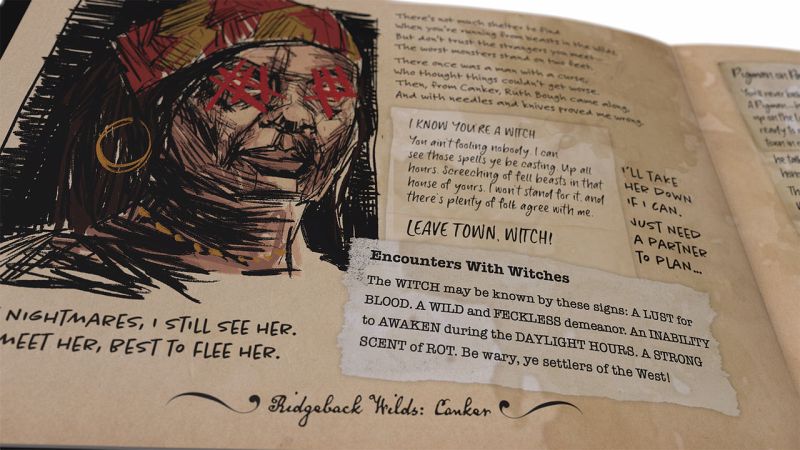 There's not much shelter to find
When you're running from beasts in the wilds
But don't trust the strangers you meet—
The worst monsters stand on two feet.
There once was a man with a curse,
Who thought things couldn't get worse.
Then, from Canker, Ruth Bough came along,
And with needles and knives proved me wrong.
I KNOW YOU'RE A WITCH
You ain't fooling nobody. I can
see those spells ye be casting. Up all
hours. Screeching of fell beasts in that
house of yours. I won't stand for it, and
there's plenty of folk agree with me.
LEAVE TOWN, WITCH!
I'LL TAKE
HER DOWN
IF I CAN.
JUST NEED
A PARTNER
TO PLAN...
Encounters With Witches
The WITCH may be known by these signs: A LUST for
BLOOD. A WILD and FECKLESS demeanor. An INABILITY
to AWAKEN during the DAYLIGHT HOURS. A STRONG
SCENT of ROT. Be wary, ye settlers of the West!
NIGHTMARES, I STILL SEE HER.
MEET HER, BEST TO FLEE HER.
Ridgeback Wilds: Canker
Pigman on
You'll never
A Pigman—
up on the
ready to
town in
he